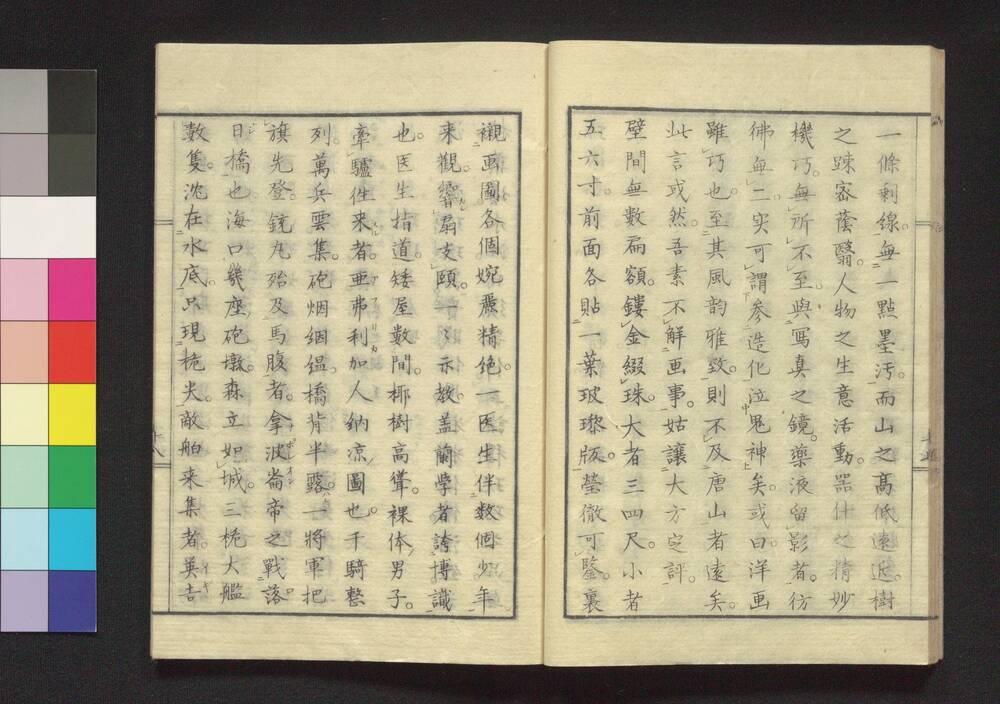 一條剩線。無一點墨汚。而山之髙低遠近。樹
之疎密蔭翳。人物之生意活動。器什之精妙
機巧。無所不至。與寫真之鏡。藥液留影者。彷
彿無二。実可謂参造化泣鬼神矣。或曰。洋画
雖巧也。至其風韵雅致。則不及唐山者遠矣。
此言或然。吾素不解画事。姑讓大方定評。
壁間無數扁額。鏤金綴珠。大者三四尺。小者
五六寸。前面各貼一葉玻瓈版。瑩徹可鑒。裏
襯画圖各個婉麗精絶。一医生伴数個少年
来觀。響扇支頤。一〻示教。盖蘭学者誇博識
也。医生指道。矮屋数間。椰樹高聳。裸体男子。
牽驢徃来者。亜弗利加人納凉圖也。千騎整
列。萬兵雲集。砲烟絪縕。橋背半露。一將軍把
旗先登。銃丸殆及馬腹者。拿波崙帝之戰落
日橋也。海口幾座砲墩。森立如城。三桅大艦
数隻。沈在水底。只現桅尖。敵舶来集者。英吉